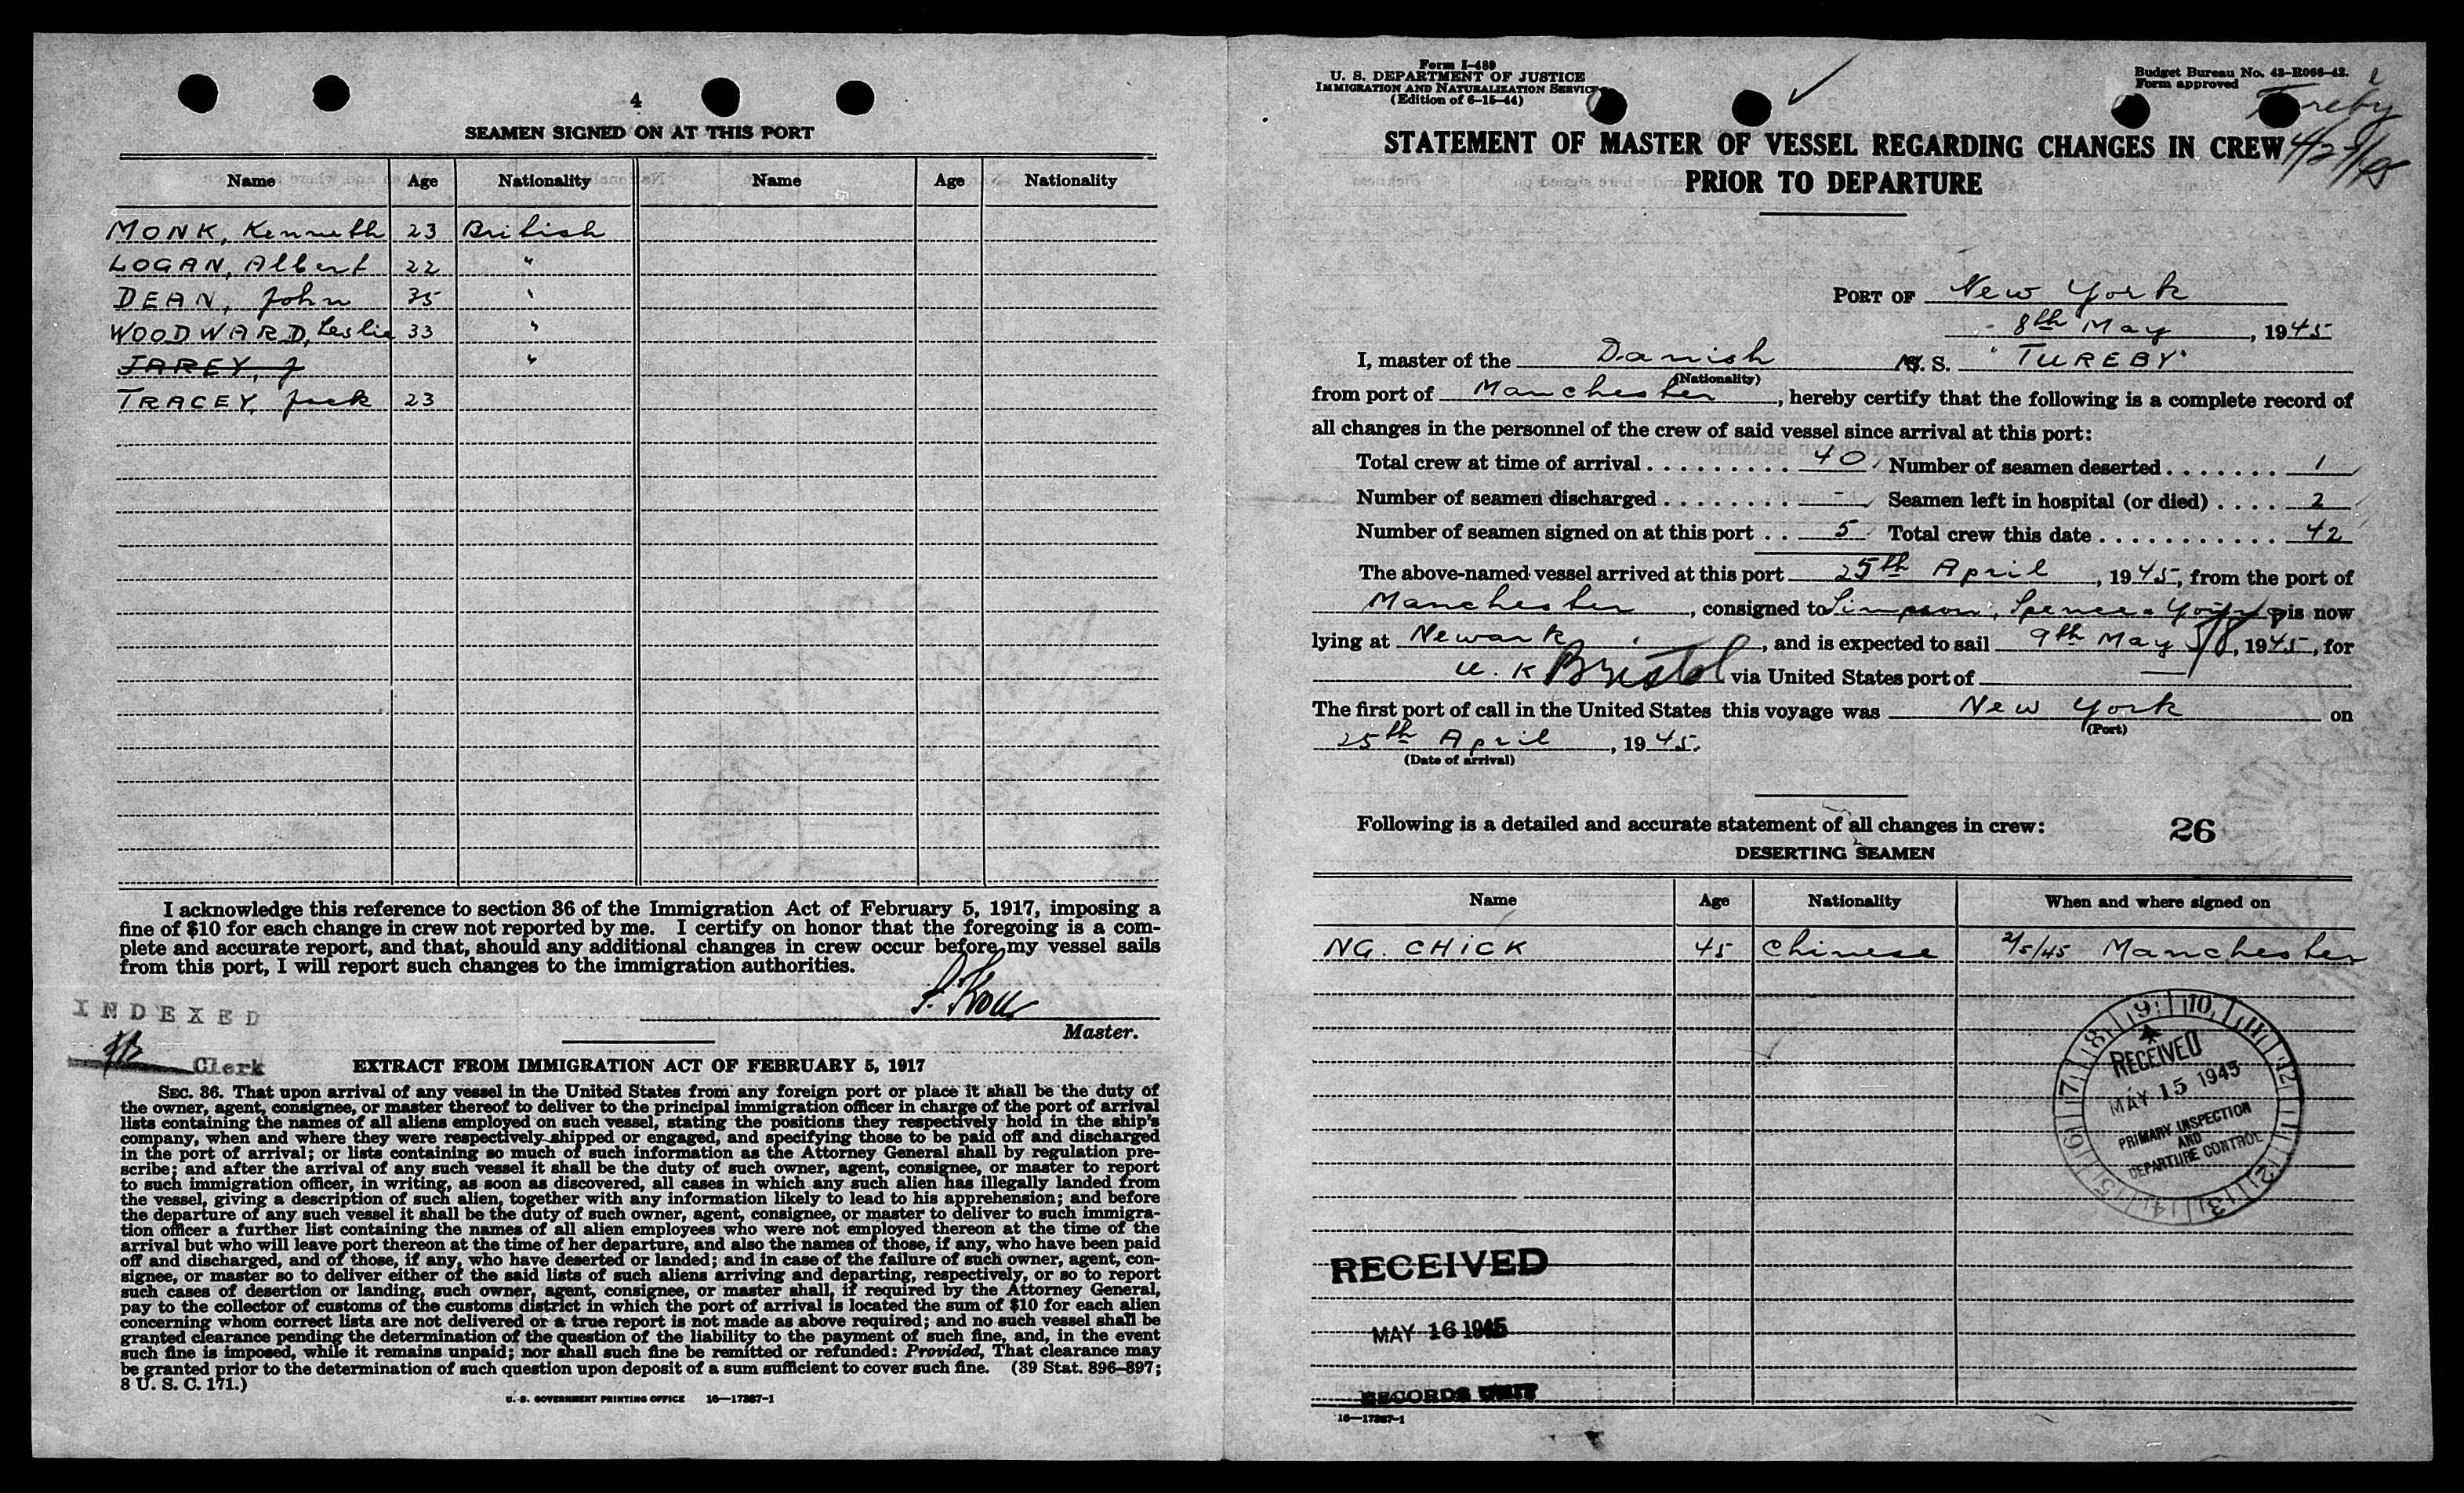 4
SEAMEN SIGNED ON AT THIS PORT
Name Age Nationality Name Age Nationality
MONK, Kenneth 23 British
LOGAN, Albert 22 "
DEAN, John 35 "
WOODWARD, Leslie 33 "
JAREY, J "
TRACEY, Jack 23
I acknowledge this reference to section 36 of the Immigration Act of February 5, 1917, imposing a
fine of $10 for each change in crew not reported by me. I certify on honor that the foregoing is a com-
plete and accurate report, and that, should any additional changes in crew occur before my vessel sails
from this port, I will report such changes to the immigration authorities.
Master.
INDEXED
Clerk
EXTRACT FROM IMMIGRATION ACT OF FEBRUARY 5, 1917
SEC. 36. That upon arrival of any vessel in the United States from any foreign port or place it shall be the duty of
the owner, agent, consignee, or master thereof to deliver to the principal immigration officer in charge of the port of arrival
lists containing the names of all aliens employed on such vessel, stating the positions they respectively hold in the ship's
company, when and where they were respectively shipped or engaged, and specifying those to be paid off and discharged
in the port of arrival; or lists containing so much of such information as the Attorney General shall by regulation pre-
scribe; and after the arrival of any such vessel it shall be the duty of such owner, agent, consignee, or master to report
to such immigration officer, in writing, as soon as discovered, all cases in which any such alien has illegally landed from
the vessel, giving a description of such alien, together with any information likely to lead to his apprehension; and before
the departure of any such vessel it shall be the duty of such owner, agent, consignee, or master to deliver to such immigra-
tion officer a further list containing the names of all alien employees who were not employed thereon at the time of the
arrival but who will leave port thereon at the time of her departure, and also the names of those, if any, who have been paid
off and discharged, and of those, if any, who have deserted or landed; and in case of the failure of such owner, agent, con-
signee, or master so to deliver either of the said lists of such aliens arriving and departing, respectively, or so to report
such cases of desertion or landing, such owner, agent, consignee, or master shall, if required by the Attorney General,
pay to the collector of customs of the customs district in which the port of arrival is located the sum of $10 for each alien
concerning whom correct lists are not delivered or a true report is not made as above required; and no such vessel shall be
granted clearance pending the determination of the question of the liability to the payment of such fine, and, in the event
such fine is imposed, while it remains unpaid; nor shall such fine be remitted or refunded: Provided, That clearance may
be granted prior to the determination of such question upon deposit of a sum sufficient to cover such fine. (39 Stat. 896-897;
8 U. S. C. 171.)
U. S. GOVERNMENT PRINTING OFFICE 16—17387-1
Form I-489
U. S. DEPARTMENT OF JUSTICE
IMMIGRATION AND NATURALIZATION SERVICE
(Edition of 6-15-44)
Budget Bureau No. 43-R066-42.
Form approved
STATEMENT OF MASTER OF VESSEL REGARDING CHANGES IN CREW
PRIOR TO DEPARTURE
PORT OF New York
8th May, 1945
I, master of the Danish M. S. "TUREBY"
(Nationality)
from port of Manchester, hereby certify that the following is a complete record of
all changes in the personnel of the crew of said vessel since arrival at this port:
Total crew at time of arrival 40 Number of seamen deserted 1
Number of seamen discharged - Seamen left in hospital (or died) 2
Number of seamen signed on at this port 5 Total crew this date 42
The above-named vessel arrived at this port 25th April, 1945, from the port of
Manchester, consigned to Simpson, Spence & Young is now
lying at Newark, and is expected to sail 9th May 5/8, 1945, for
U.K Bristol via United States port of —
The first port of call in the United States this voyage was New York on
(Port)
25th April, 1945.
(Date of arrival)
Following is a detailed and accurate statement of all changes in crew: 26
DESERTING SEAMEN
Name Age Nationality When and where signed on
NG. CHICK 45 Chinese 2/5/45 Manchester
9 10 11 12 1 2 3 4 5 6 7 8
RECEIVED
MAY 15 1945
PRIMARY INSPECTION
AND
DEPARTURE CONTROL
RECEIVED
MAY 16 1945
RECORDS UNIT
16—17387-1